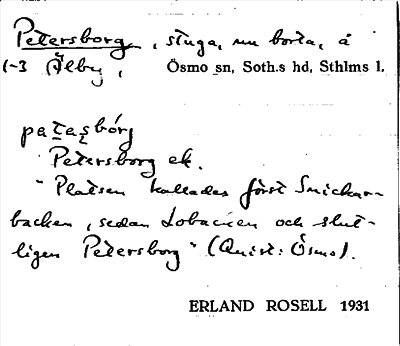 Petersborg, stuga, nu borta, å
1-3 Älby, Ösmo sn, Soth.s hd, Sthlms l.
Petersborg ek.
"Platsen kallades först Snickar-
backen, sedan Lobacken och slut-
ligen Petersborg" (Quist: Ösmo).
ERLAND ROSELL 1931